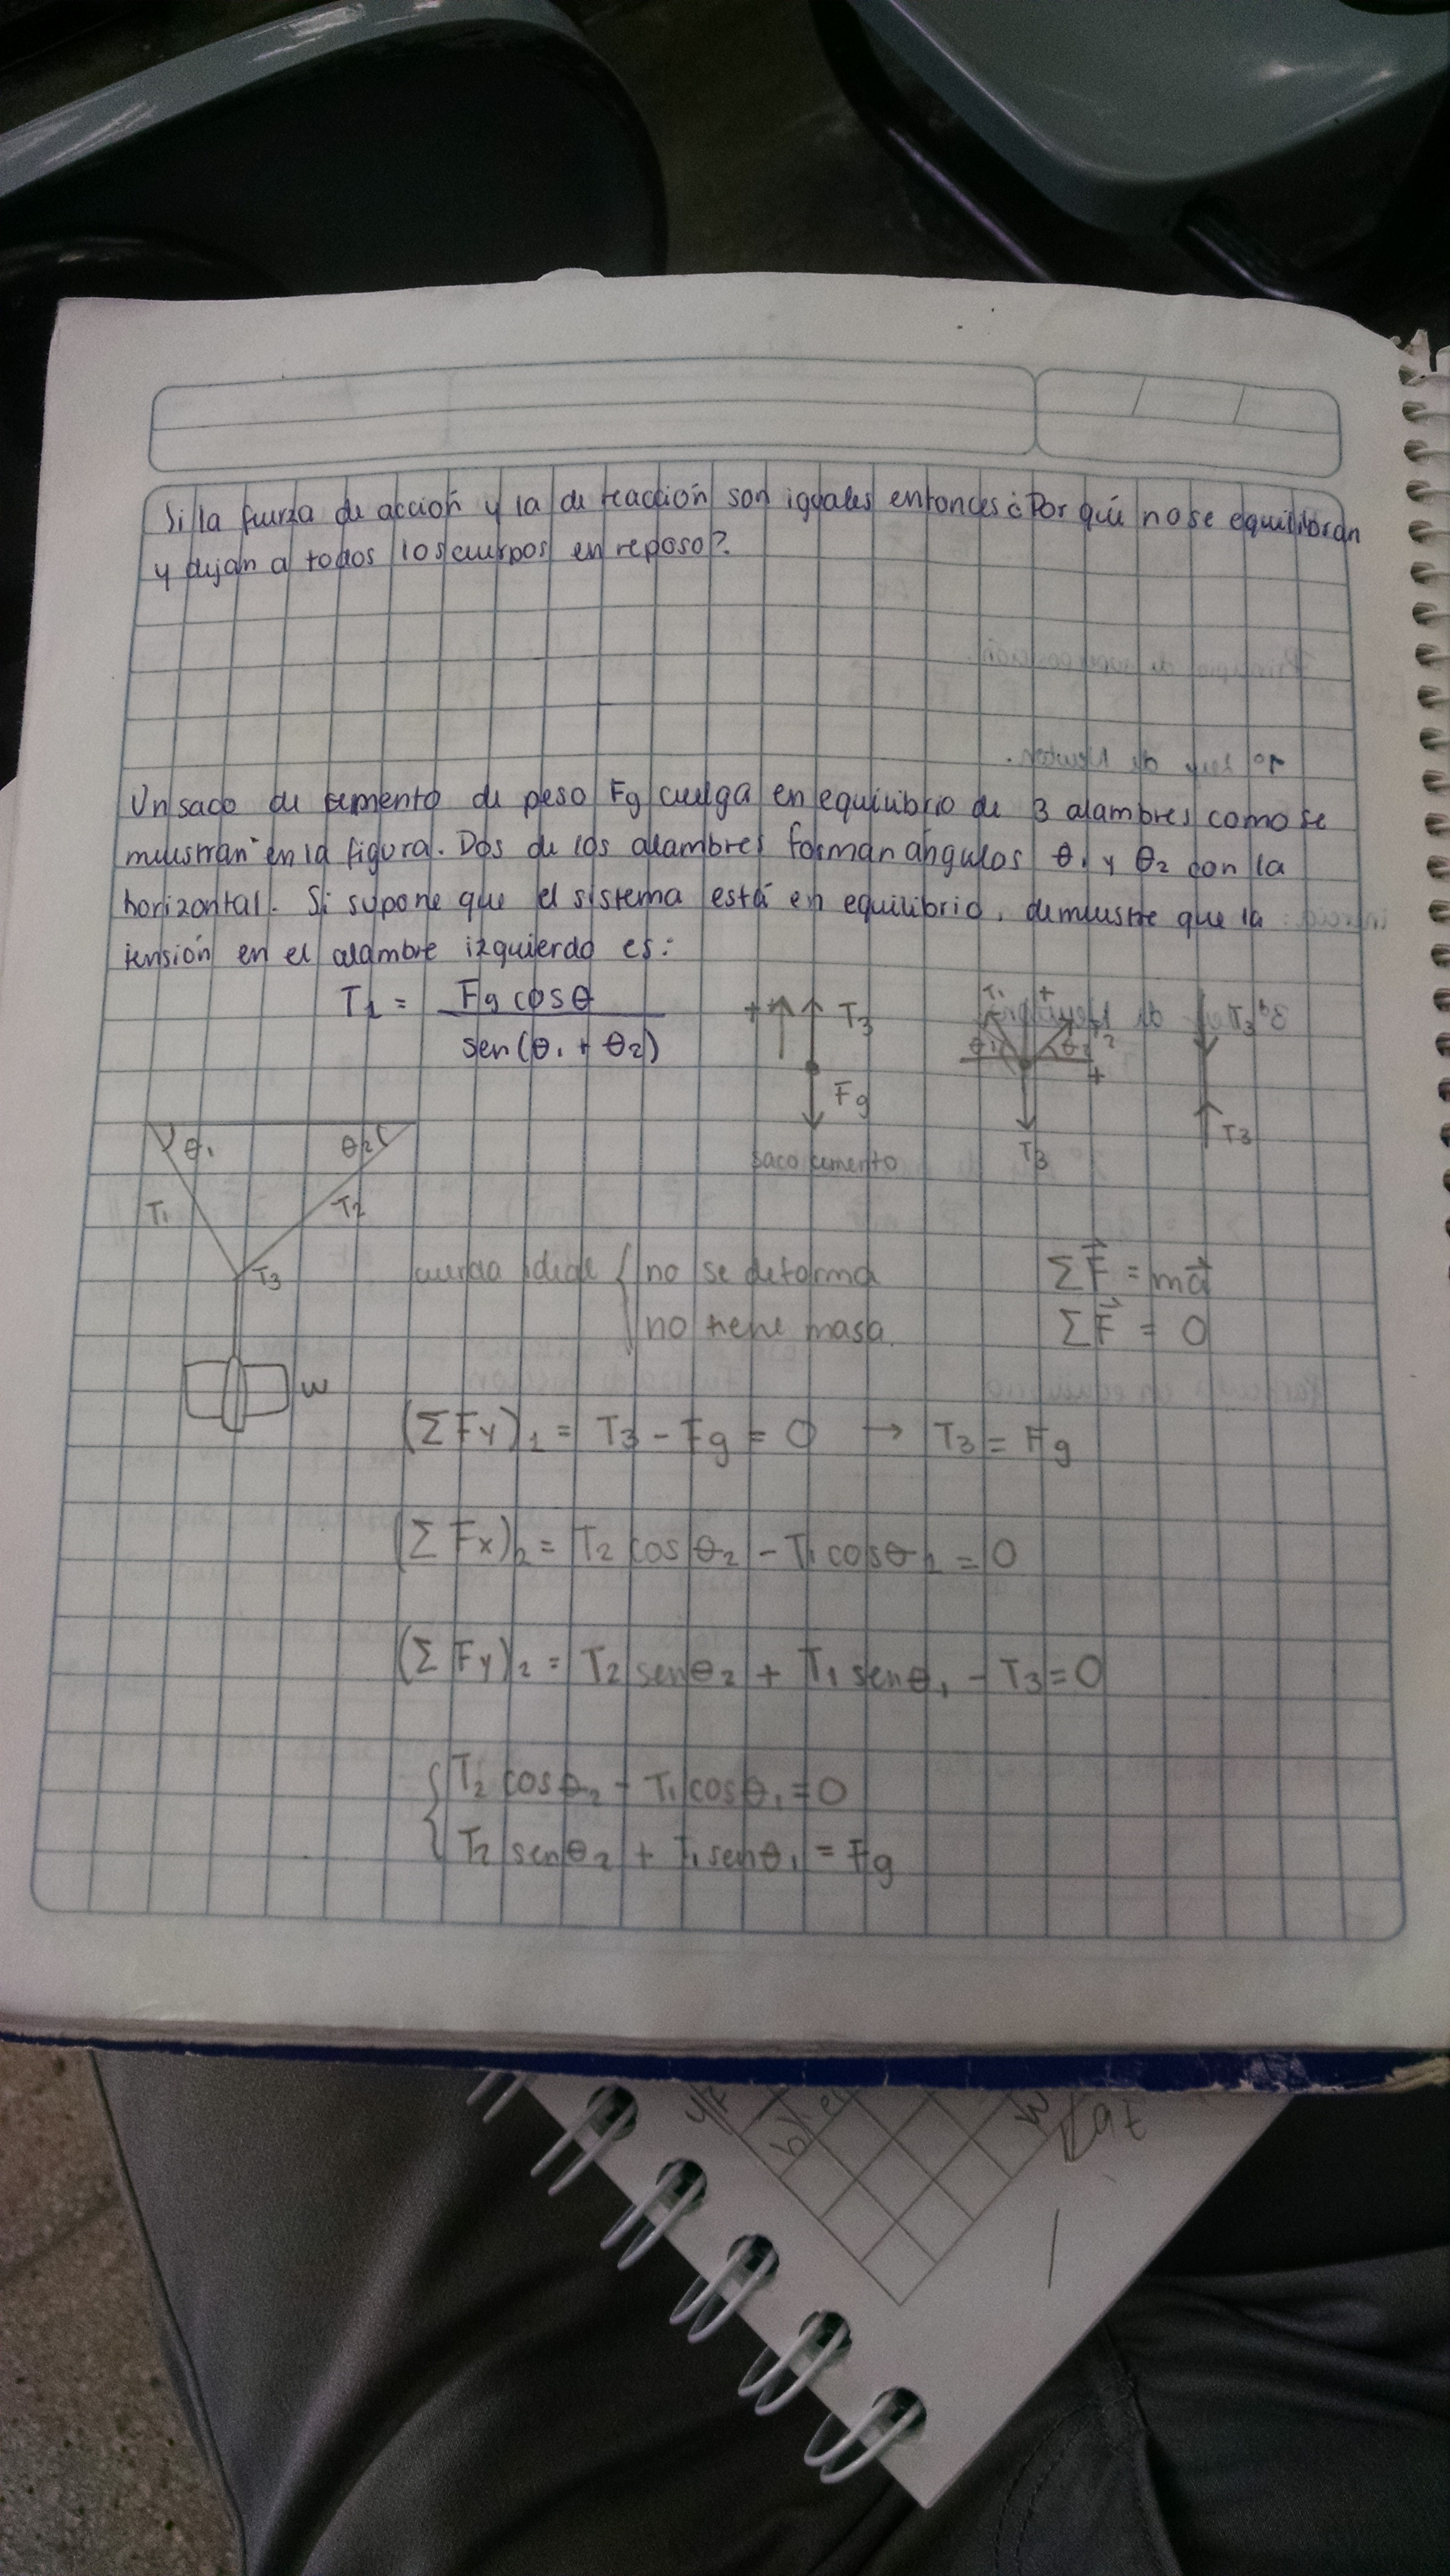 Si la fuerza de acción y la de reacción son iguales entonces ¿Por qué no se equilibran
y dejan a todos los cuerpos en reposo?.
Un saco de cemento de peso Fg cuelga en equilibrio de 3 alambres como se
muestran en la figura. Dos de los alambres forman ángulos θ₁ y θ₂ con la
horizontal. Si supone que el sistema está en equilibrio, demuestre que la
tensión en el alambre izquierdo es:
T₁ = Fg cosθ / sen(θ₁ + θ₂)
+ T₃
Fg
saco cemento
T₁ +
θ₁ θ₂
+
T₃
T₃
T₃
θ₁ θ₂
T₁ T₂
T₃
w
cuerda ideal { no se deforma
no tiene masa
ΣF⃗ = ma⃗
ΣF⃗ = 0
(ΣFy)₁ = T₃ - Fg = 0 → T₃ = Fg
(ΣFx)₂ = T₂ cosθ₂ - T₁ cosθ₁ = 0
(ΣFy)₂ = T₂ senθ₂ + T₁ senθ₁ - T₃ = 0
{ T₂ cosθ₂ - T₁ cosθ₁ = 0
T₂ senθ₂ + T₁ senθ₁ = Fg